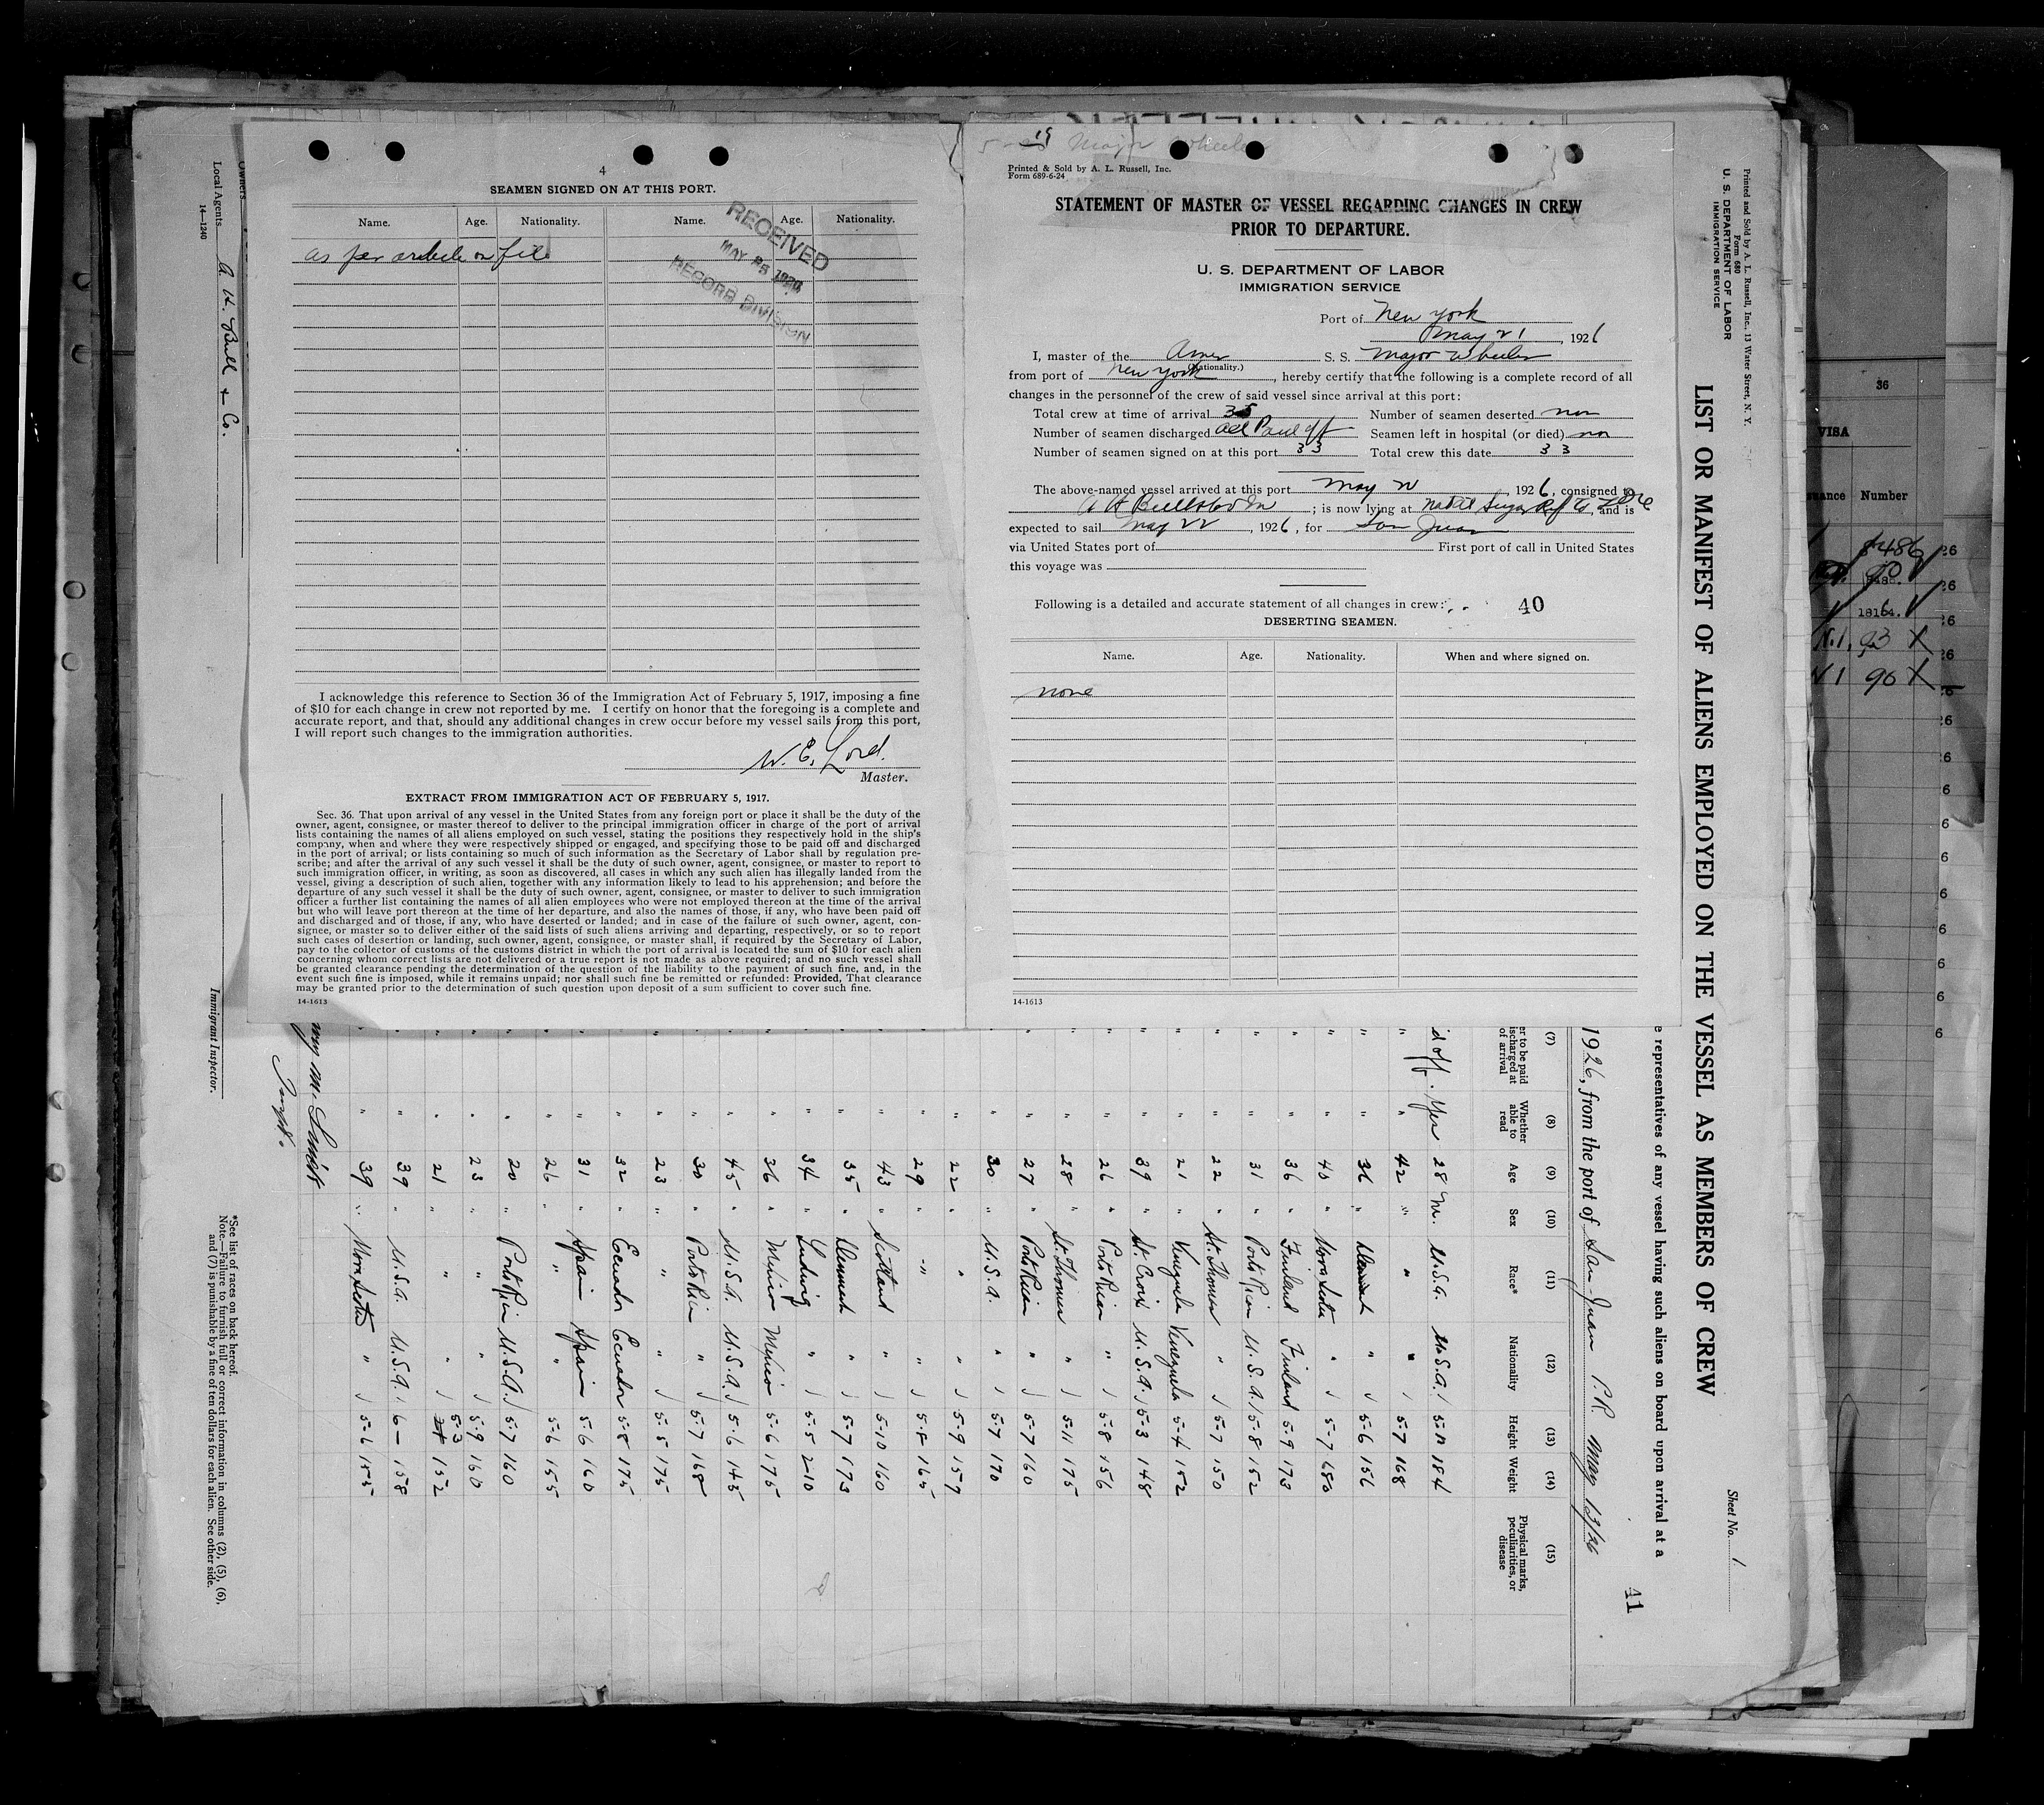 4
SEAMEN SIGNED ON AT THIS PORT.
Name. Age. Nationality. Name. Age. Nationality.
as per article on file
RECEIVED
MAY 1926
RECORD DIVISION
I acknowledge this reference to Section 36 of the Immigration Act of February 5, 1917, imposing a fine
of $10 for each change in crew not reported by me. I certify on honor that the foregoing is a complete and
accurate report, and that, should any additional changes in crew occur before my vessel sails from this port,
I will report such changes to the immigration authorities.
W. E. Lord.
Master.
EXTRACT FROM IMMIGRATION ACT OF FEBRUARY 5, 1917.
Sec. 36. That upon arrival of any vessel in the United States from any foreign port or place it shall be the duty of the
owner, agent, consignee, or master thereof to deliver to the principal immigration officer in charge of the port of arrival
lists containing the names of all aliens employed on such vessel, stating the positions they respectively hold in the ship's
company, when and where they were respectively shipped or engaged, and specifying those to be paid off and discharged
in the port of arrival; or lists containing so much of such information as the Secretary of Labor shall by regulation pre-
scribe; and after the arrival of any such vessel it shall be the duty of such owner, agent, consignee, or master to report to
such immigration officer, in writing, as soon as discovered, all cases in which any such alien has illegally landed from the
vessel, giving a description of such alien, together with any information likely to lead to his apprehension; and before the
departure of any such vessel it shall be the duty of such owner, agent, consignee, or master to deliver to such immigration
officer a further list containing the names of all alien employees who were not employed thereon at the time of the arrival
but who will leave port thereon at the time of her departure, and also the names of those, if any, who have been paid off
and discharged and of those, if any, who have deserted or landed; and in case of the failure of such owner, agent, con-
signee, or master so to deliver either of the said lists of such aliens arriving and departing, respectively, or so to report
such cases of desertion or landing, such owner, agent, consignee, or master shall, if required by the Secretary of Labor,
pay to the collector of customs of the customs district in which the port of arrival is located the sum of $10 for each alien
concerning whom correct lists are not delivered or a true report is not made as above required; and no such vessel shall
be granted clearance pending the determination of the question of the liability to the payment of such fine, and, in the
event such fine is imposed, while it remains unpaid; nor shall such fine be remitted or refunded: Provided, That clearance
may be granted prior to the determination of such question upon deposit of a sum sufficient to cover such fine.
14-1613
19 Major Wheeler
Printed & Sold by A. L. Russell, Inc.
Form 689-6-24
STATEMENT OF MASTER OF VESSEL REGARDING CHANGES IN CREW
PRIOR TO DEPARTURE.
U. S. DEPARTMENT OF LABOR
IMMIGRATION SERVICE
Port of New York
May 21, 1926
I, master of the Amer S. S. Major Wheeler
(Nationality.)
from port of New York, hereby certify that the following is a complete record of all
changes in the personnel of the crew of said vessel since arrival at this port:
Total crew at time of arrival 35 Number of seamen deserted non
Number of seamen discharged all Paid off Seamen left in hospital (or died) non
Number of seamen signed on at this port 33 Total crew this date 33
The above-named vessel arrived at this port May, 1926, consigned to
A H Bull; is now lying at Sugar Ref Co, and is
expected to sail May 22, 1926, for San Juan
via United States port of First port of call in United States
this voyage was
Following is a detailed and accurate statement of all changes in crew: 40
DESERTING SEAMEN.
Name. Age. Nationality. When and where signed on.
none
14-1613
Printed and Sold by A. L. Russell, Inc., 13 Water Street, N. Y.
Form 680
U. S. DEPARTMENT OF LABOR
IMMIGRATION SERVICE
Sheet No. 1
LIST OR MANIFEST OF ALIENS EMPLOYED ON THE VESSEL AS MEMBERS OF CREW
e representatives of any vessel having such aliens on board upon arrival at a
41
1926, from the port of San Juan P.R. May 13/26
(7) (8) (9) (10) (11) (12) (13) (14) (15)
er to be paid ischarged at of arrival Whether able to read Age Sex Race* Nationality Height Weight Physical marks, peculiarities, or disease
d off. Yes 28 M. U.S.A. U.S.A. 184
" " 42 " " " 5-7 168
" " 36 " " 5-6 156
" " 40 " Nova Scotia " 5-7
" " 36 " Finland Finland 5-9 173
" " 31 " Porto Rican U.S.A. 5-8 152
" " 22 " St. Thomas " 5-7 150
" " 21 " Venezuela Venezuela 5-4 152
" " 39 " St. Croix U.S.A. 5-3 148
" " 26 " Porto Rican " 5-8 156
" " 28 " St. Thomas " 5-11 175
" " 27 " Porto Rican " 5-7 160
" " 30 " U.S.A. " 5-7 170
" " 22 " " " 5-9 157
" " 29 " " " 5-8 165
" " 43 " Scotland " 5-10 160
" " 35 " Denmark " 5-7 173
" " 34 " " 5-5 210
" " 36 " Mexico Mexico 5-6 175
" " 45 " U.S.A. U.S.A. 5-6 145
" " 30 " Porto Rico " 5-7 168
" " 23 " " " 5-5 175
" " 32 " Ecuador Ecuador 5-8 175
" " 31 " Spain Spain 5-6 160
" " 26 " " " 5-6 155
" " 20 " Porto Rican U.S.A. 5-7 160
" " 23 " " " 5-9 160
" " 21 " " " 5-3 152
" " 39 " U.S.A. U.S.A. 6- 158
" " 39 " Nova Scotia " 5-6 155
Inspt.
Owners
Local Agents A. H. Bull & Co.
14-1240
Immigrant Inspector.
*See list of races on back hereof.
Note.—Failure to furnish full or correct information in columns (2), (5), (6),
and (7) is punishable by a fine of ten dollars for each alien. See other side.
36
VISA
suance Number
18164.
N.1. 93 X
90 X